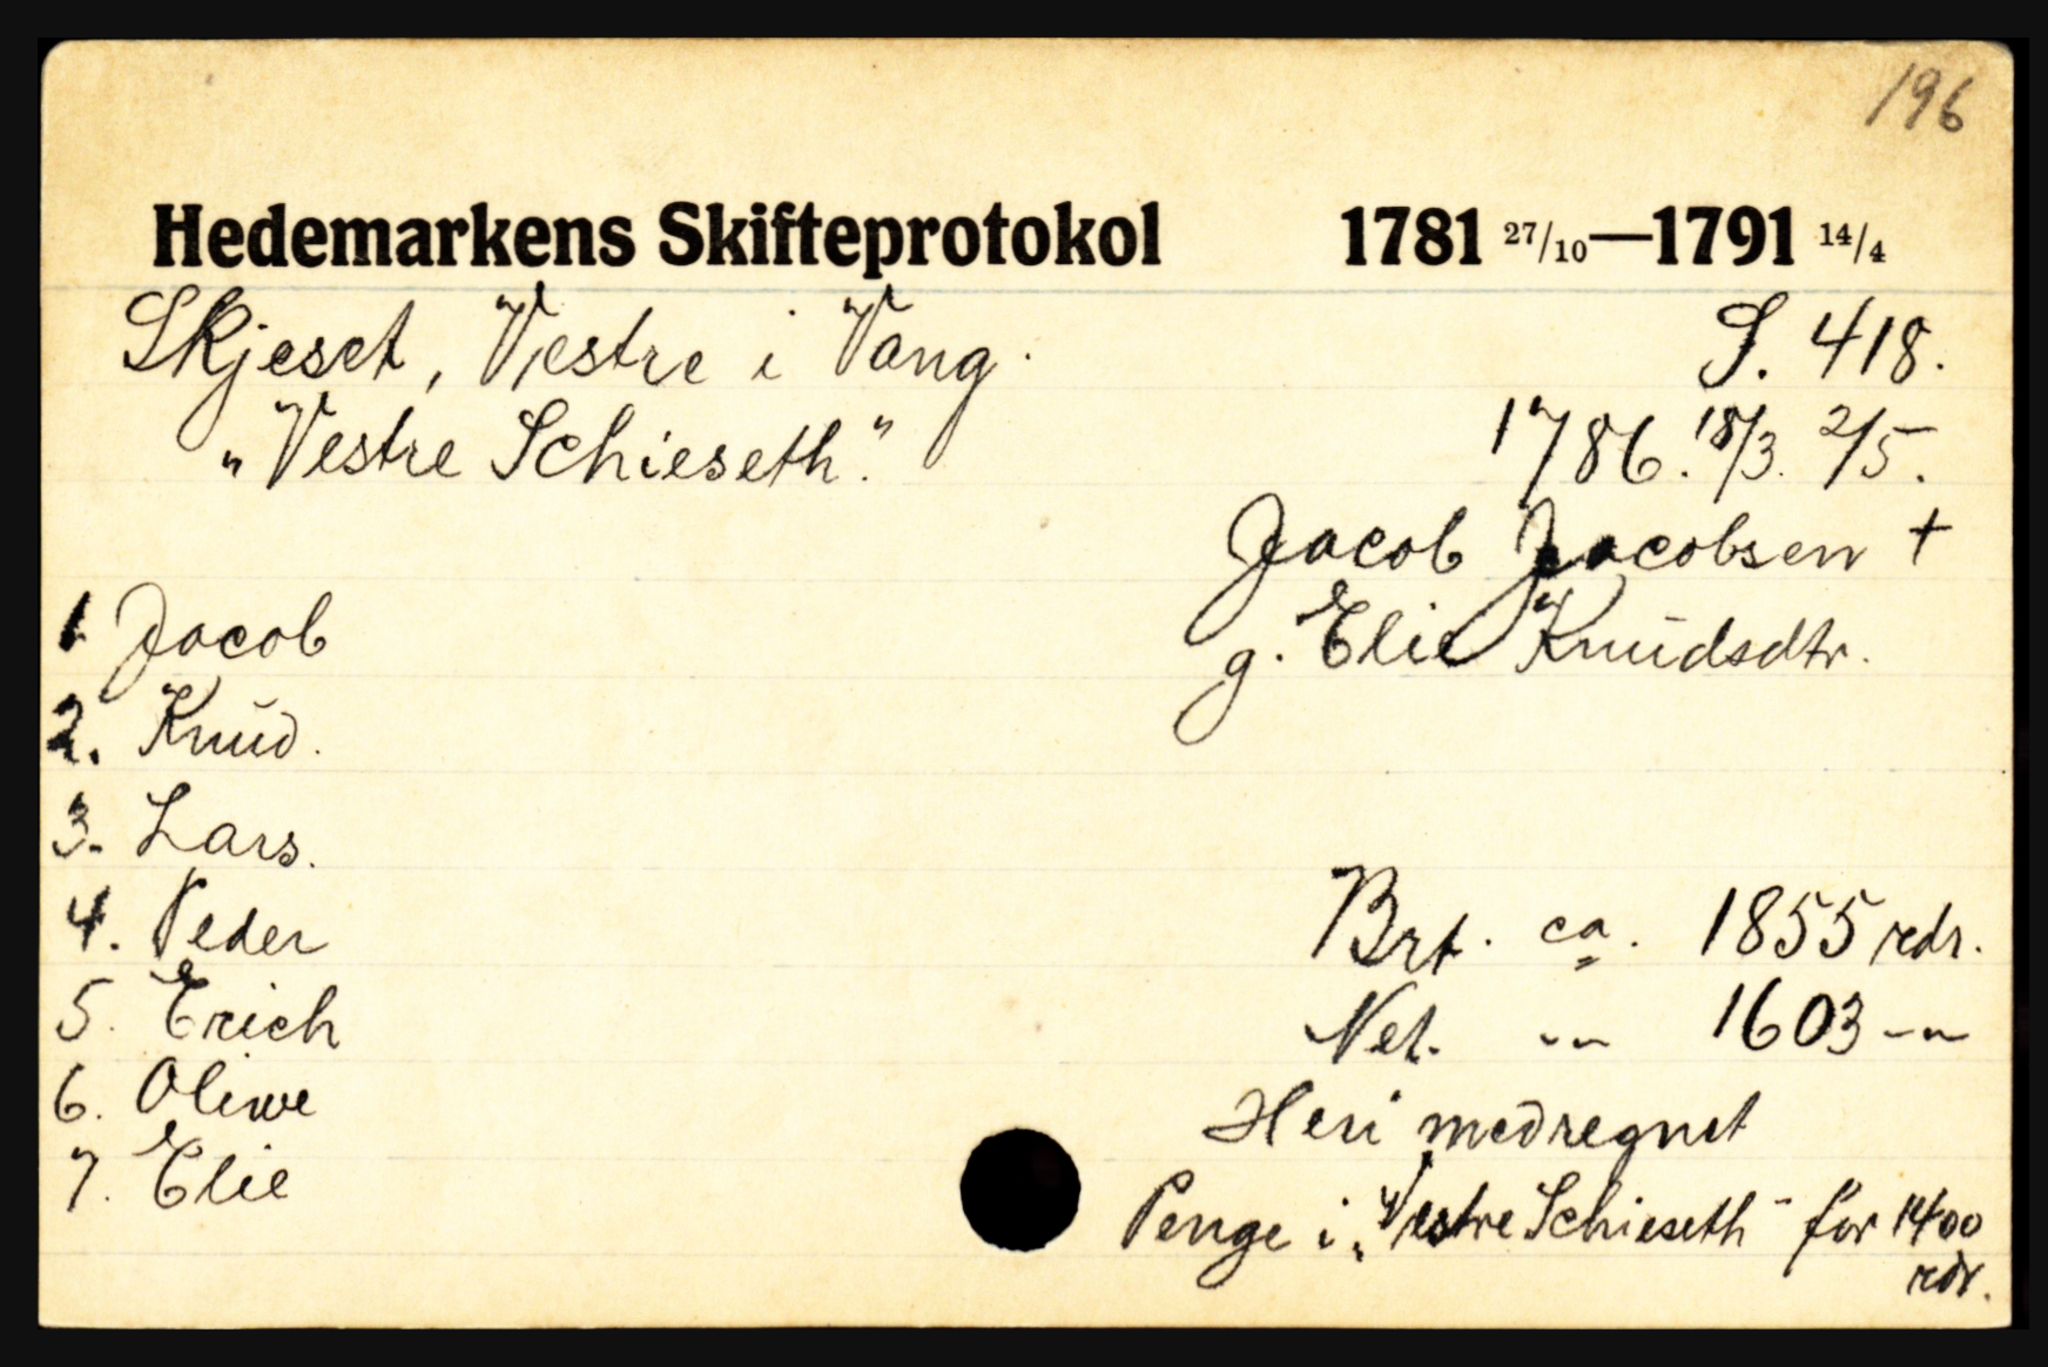 196
Hedemarkens Skifteprotokol 1781 27/10—1791 14/4
Skjeset, Vestre i Vang. S. 418.
„Vestre Schieseth.“ 1786. 18/3. 2/5.
Jacob Jacobsen †
g. Elie Knudsdtr.
1 Jacob
2. Knud.
3. Lars.
4. Peder
5. Erich
6. Oliwe
7. Elie
Brt. ca. 1855 rdr.
Net. -"- 1603 -"-
Heri medregnet
Penge i „Vestre Schieseth“ for 1400
rdr.